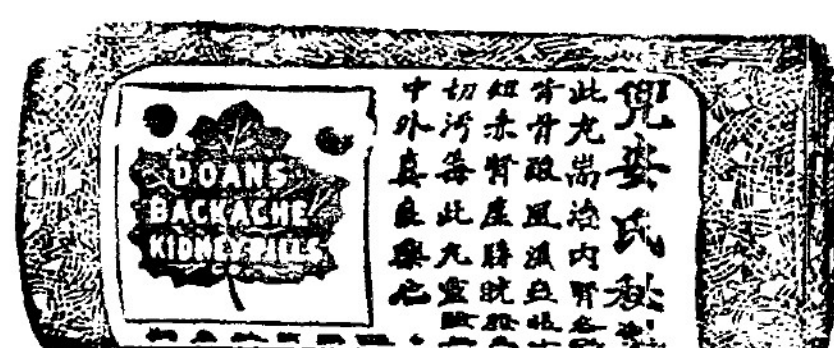 DOANS
BACKACHE
KIDNEY PILLS
CO.
兜安氏秘
此丸耑治內腎各
背骨酸風濕
短赤腎虛膀胱發
切污毒此丸靈驗
中外真良藥也